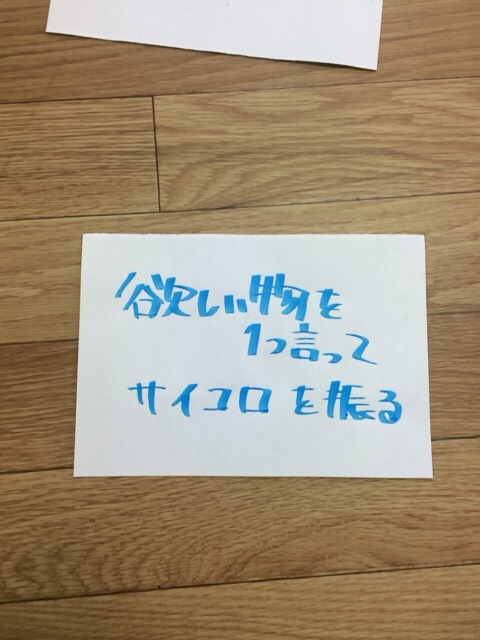 欲しい物を
1つ言って
サイコロを振る